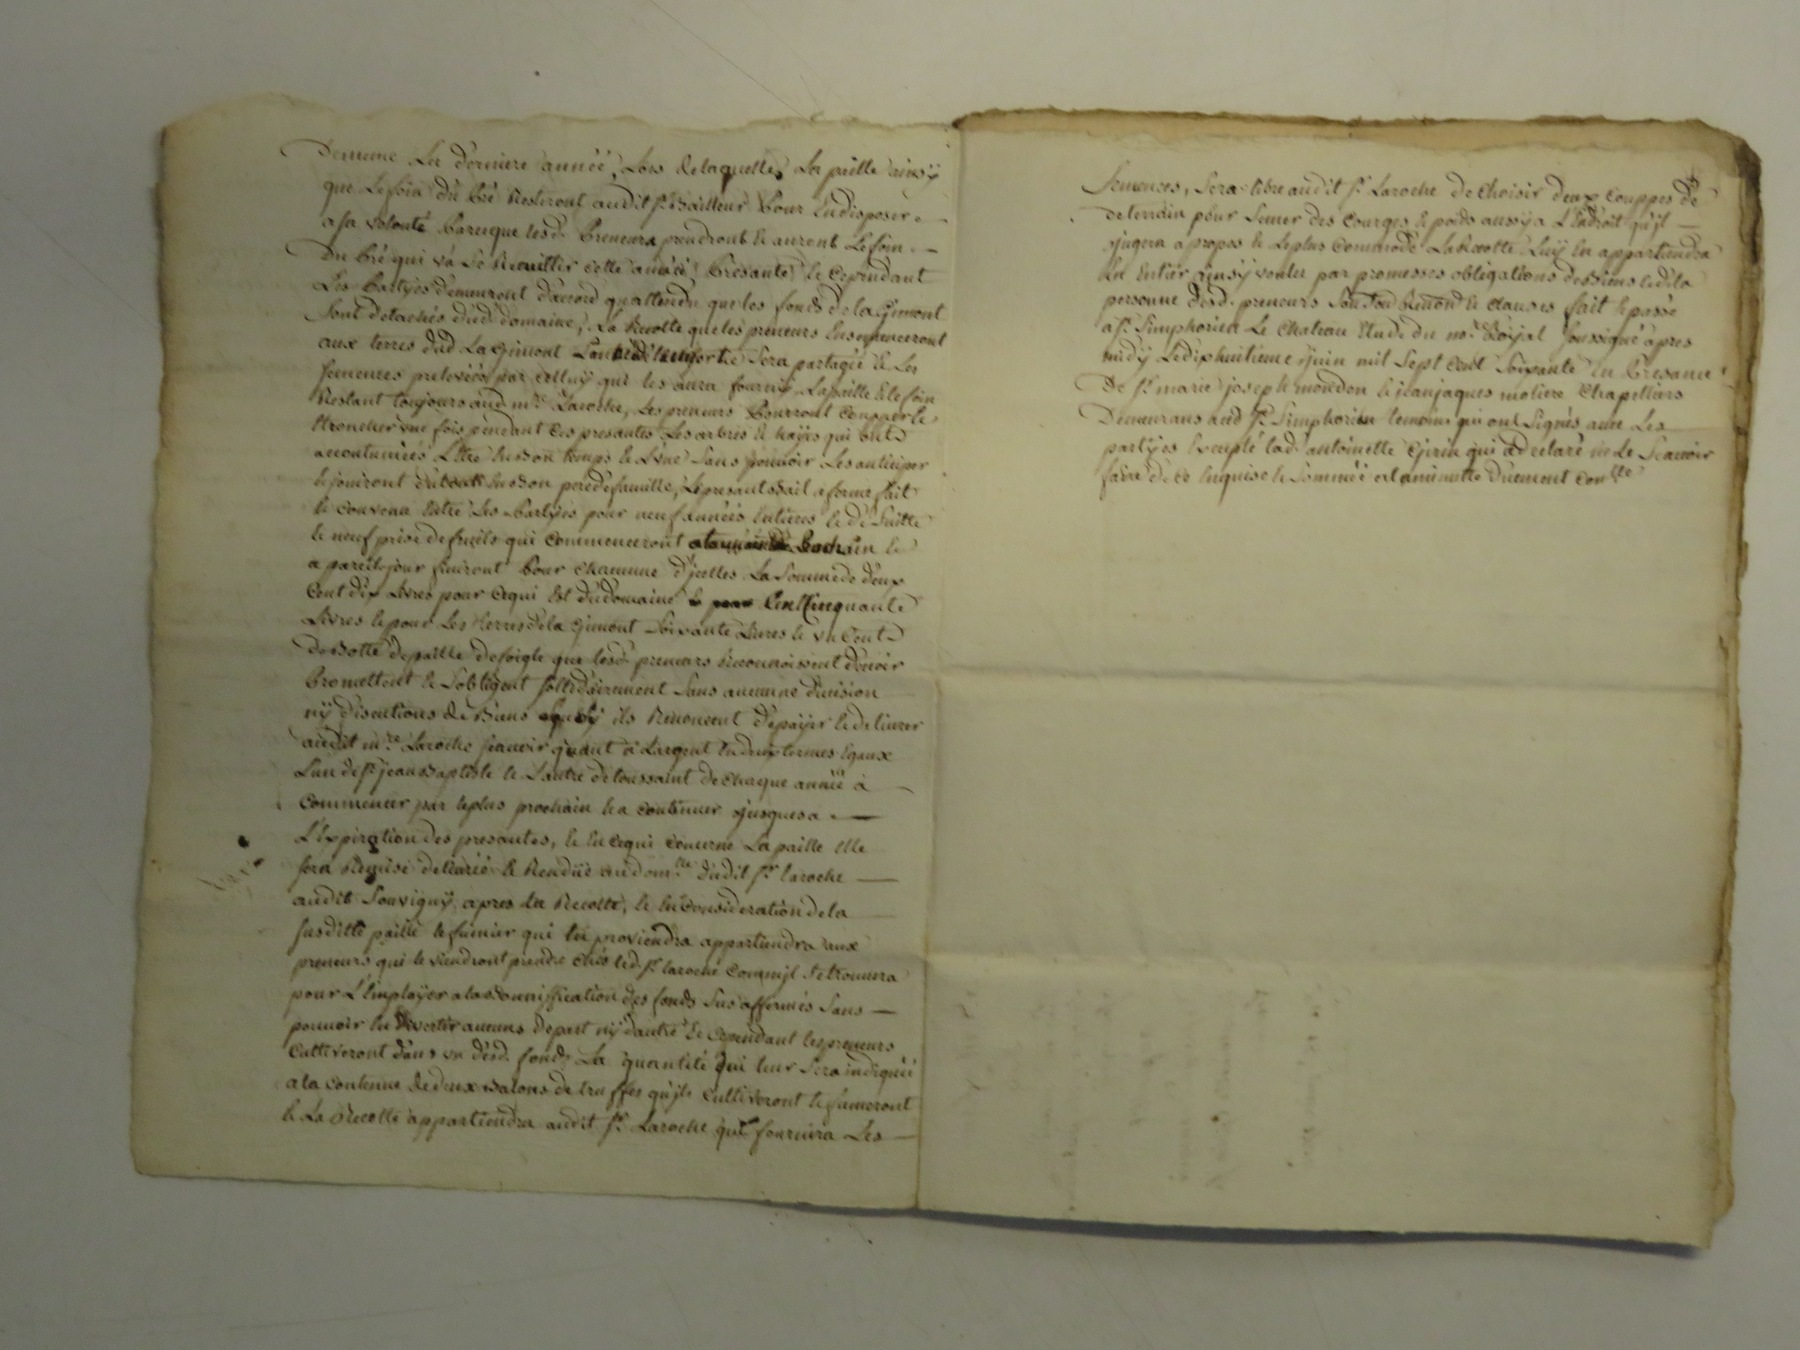 Demême La derniere année, Lors delaquelle, La paille ainsy
que Lefoin du Pré Resteront audit Sr. Bailleur Pour Endisposer
a sa volonté Parceque lesd. Preneurs prendront et auront Lefoin
Du Pré qui va Se Recuillir cette année présante, et Cependant
Les Partyes demeurent d'acord qu'attendu que les fonds de la Gimont
sont detachés dud. domaine, La Recolte que les preneurs Ensemenceront
aux terres dud. La Gimont L'année sera partagée et Les
semences prelevées par celluy qui les aura fournie, Lapaille et lefoin
Restant toujours aud. mre. Laroche, Les preneurs Pourront Coupper et
Etroncher une fois pendant Ces presantes Les arbres et hayes qui ont
accoutumés Lêtre Enson temps et Lune Sans pouvoir Les anticiper
et jouiront du tout En bon pere de famille, Le presant Bail a ferme fait
et convenu Entre Les Partyes pour neuf années Entieres et de Suitte
et neuf prise de fruits qui Commenceront Prochain et
a pareil jour finiront Pour Chacunne d'jcelles La Somme de deux
Cent dix Livres pour Cequi Est du domaine Cent Cinquante
Livres et pour Les Terres de la Gimont Soixante Livres et un Cent
De Botte de paille de soigle que lesd. preneurs Reconnoissent devoir
Promettent et S'obligent sollidairement Sans aucunne division
ny discutions de Biens ils Renoncent de payer et delivrer
audit mre. Laroche scavoir quant à L'argent En deux termes Egaux
L'un de St. jean Baptiste et L'autre de toussaint de chaque année à
Commencer par le plus prochain et a continuer jusques a
L'Expiration des presantes, et En cequi Concerne La paille Elle
sera Remise delivrée et Rendüe au domlle. dudit Sr. Laroche
audit Souvigny apres La Recolte, et En Consideration de la
susditte paille le fumier qui En proviendra appartiendra aux
preneurs qui le viendront prendre chés led. Sr. Laroche Comm'jl se trouvera
pour L'Employer a la Bonniffication des fonds sus affermés Sans
pouvoir En Divertir aucuns depart ny d'autre et Cependant les preneurs
Cultiveront dans un desd. fonds La quantité qui leur sera indiquéé
a la contenue de deux de truffes qu'jls Cultiveront et fumeront
et La Recolte appartiendra audit Sr. Laroche qui fournira Les
Semences, Sera libre audit Sr. Laroche de Choisir deux Couppes de
de terrain pour Semer des Courges et poids aussy a L'Endroit qu'il
jugera a propos et Le plus Commode La Recotte Luy En appartiendra
En Entier ainsy voulu par promesses obligations des Biens et de la
personne desd. preneurs Renon et clauses fait et passé
a St. Simphorien Le Chateau Etude du mre. Royal soussigné apres
midy Le dixhuitieme juin mil Sept Cent Soixante En Presance
De Sr. marie joseph mondon et jean jaques moliere Chapelliers
Demeurans aud. St. Simphorien temoins qui ont Signés avec Les
partyes Excepté lad. antoinette qui a declaré ne Le Scavoir
faire de ce Enquise et Sommée a la minutte Duement Conlle.